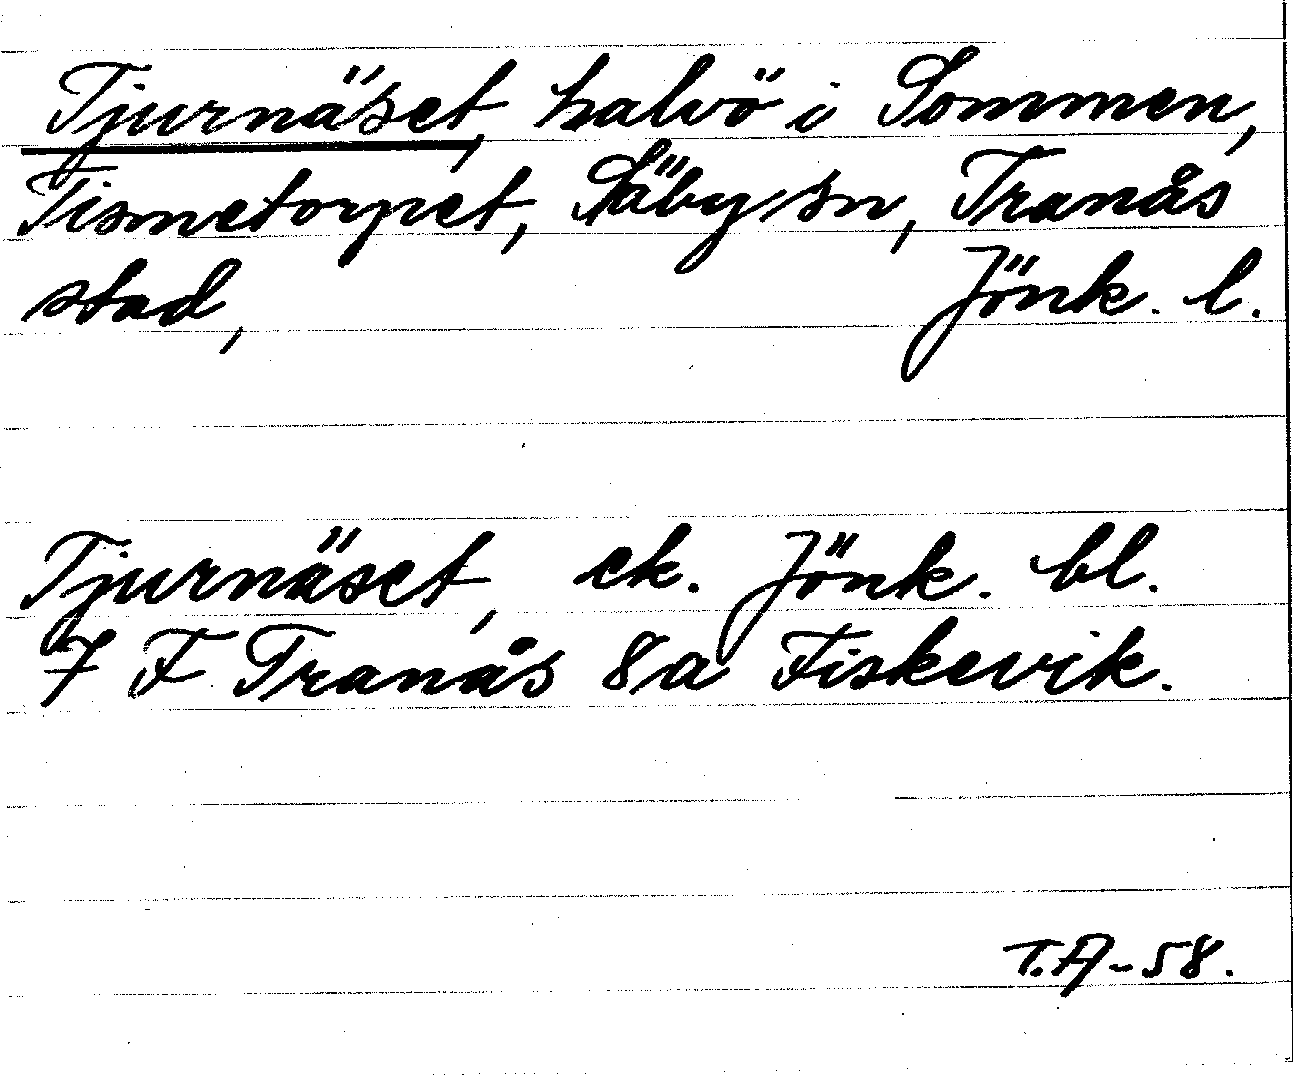 Tjurnäset, halvö i Sommen,
Tismetorpet, Säby sn, Tranås
stad, Jönk. l.
Tjurnäset, ek. Jönk. bl.
7 F Tranås 8a Fiskevik.
T.A-58.